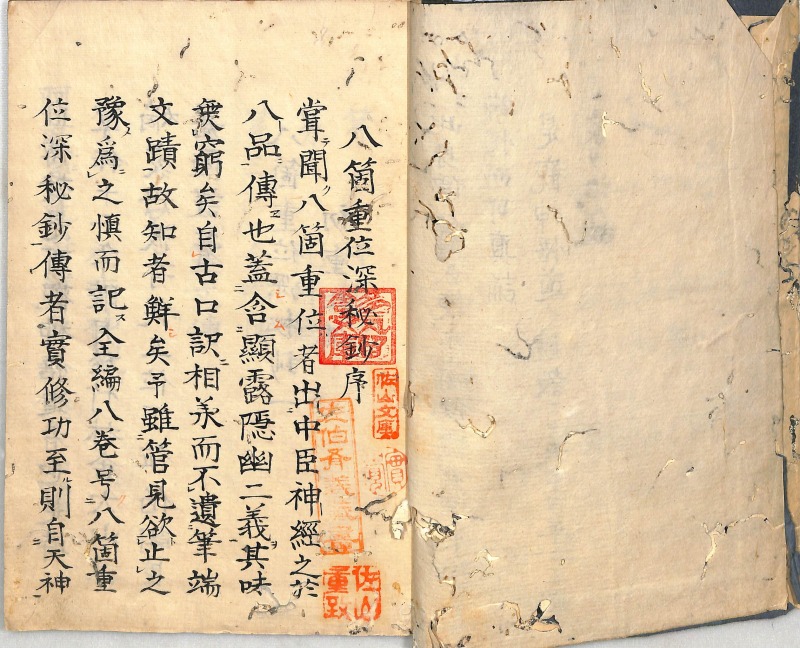 八箇重位深秘鈔序
甞聞八箇重位者出中臣神經之於
八品傳也蓋含顯露隠幽二義其味
無窮矣自古口訳相羕而不遺筆端
文蹟故知者鮮矣予雖管見欲止之
豫為之慎而記全編八巻号八箇重
位深秘鈔傳者實修功至則自天神
佐山文庫